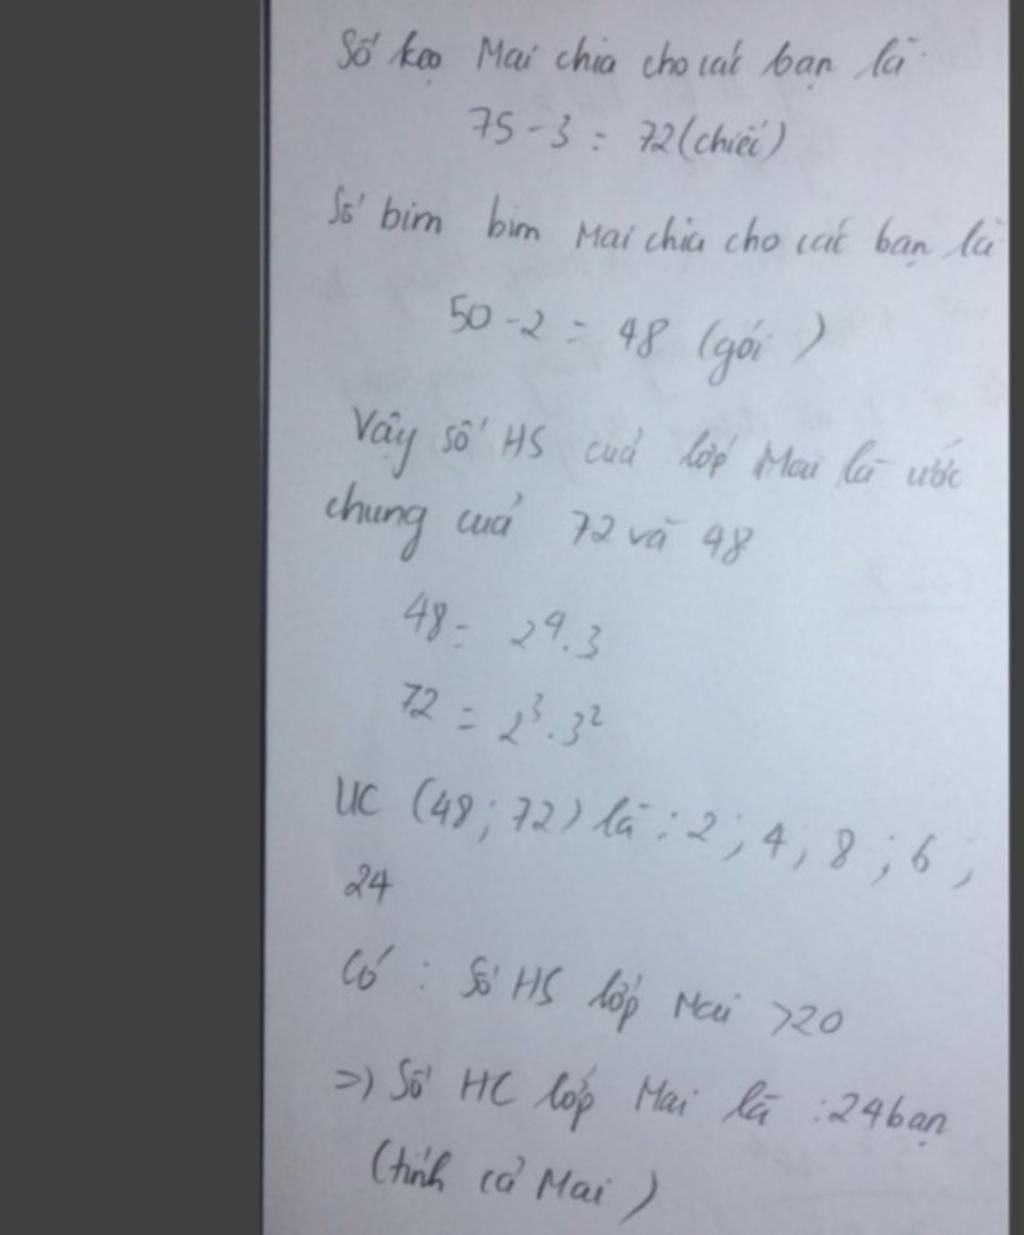 Số kẹo Mai chia cho các bạn là
75 - 3 = 72 (chiếc)
Số bim bim Mai chia cho các bạn là
50 - 2 = 48 (gói)
Vậy số HS của lớp Mai là ước
chung của 72 và 48
48 = 2⁴.3
72 = 2³.3²
ƯC (48; 72) là : 2; 4; 8; 6;
24
Có : Số HS lớp Mai >20
=> Số HC lớp Mai là : 24 bạn
(tính cả Mai)